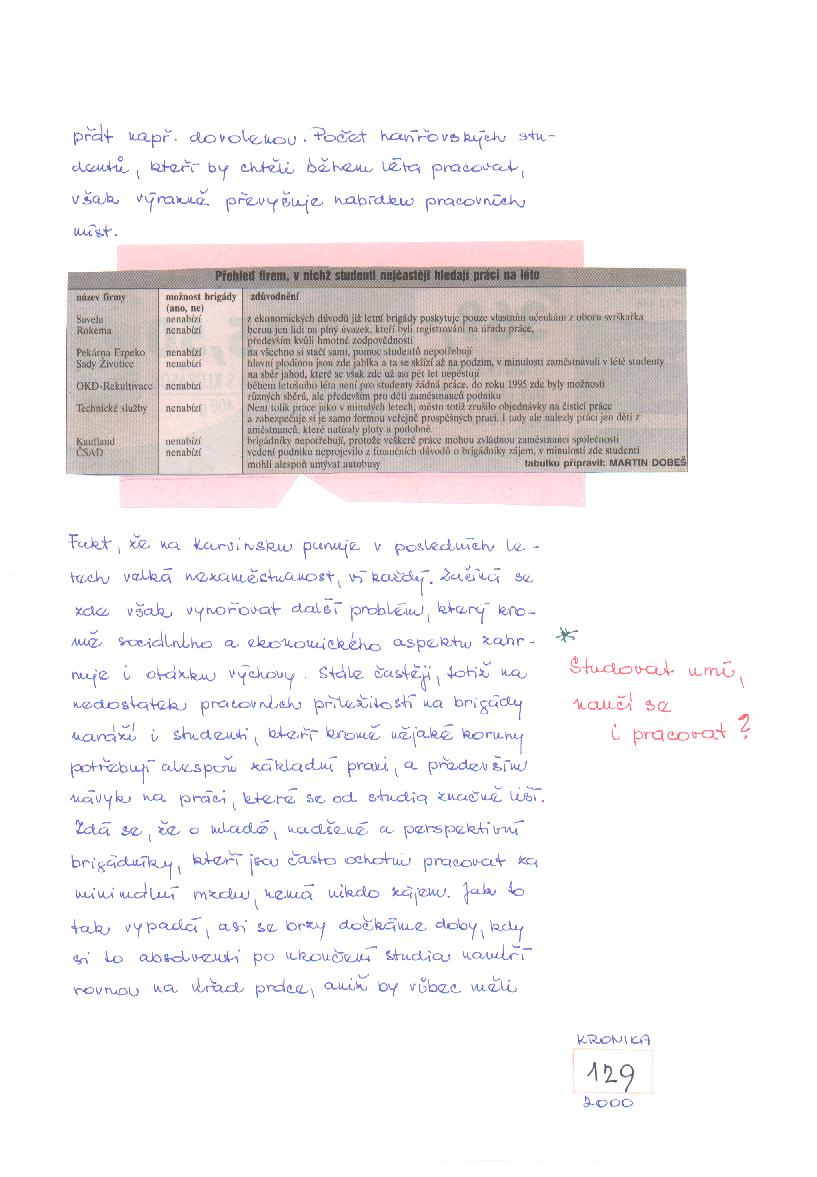 přát např. dovolenou. Počet havířovských stu-
dentů, kteří by chtěli během léta pracovat,
však výrazně převyšuje nabídku pracovních
míst.
Přehled firem, v nichž studenti nejčastěji hledají práci na léto
název firmy možnost brigády zdůvodnění
(ano, ne)
Savela nenabízí z ekonomických důvodů již letní brigády poskytuje pouze vlastním učenkám z oboru svrškařka
Rokema nenabízí berou jen lidi na plný úvazek, kteří byli registrováni na úřadu práce,
především kvůli hmotné zodpovědnosti
Pekárna Erpeko nenabízí na všechno si stačí sami, pomoc studentů nepotřebují
Sady Životice nenabízí hlavní plodinou jsou zde jablka a ta se sklízí až na podzim, v minulosti zaměstnávali v létě studenty
na sběr jahod, které se však zde už asi pět let nepěstují
OKD-Rekultivace nenabízí během letošního léta není pro studenty žádná práce, do roku 1995 zde byly možnosti
různých sběrů, ale především pro děti zaměstnanců podniku
Technické služby nenabízí Není tolik práce jako v minulých letech, město totiž zrušilo objednávky na čisticí práce
a zabezpečuje si je samo formou veřejně prospěšných prací. I tady ale nalezly práci jen děti z
aměstnanců, které natíraly ploty a podobně.
Kaufland nenabízí brigádníky nepotřebují, protože veškeré práce mohou zvládnou zaměstnanci společnosti
ČSAD nenabízí vedení podniku neprojevilo z finančních důvodů o brigádníky zájem, v minulosti zde studenti
mohli alespoň umývat autobusy tabulku připravil: MARTIN DOBEŠ
Fakt, že na Karvinsku panuje v posledních le-
tech velká nezaměstnanost, ví každý. Začíná se
zde však vynořovat další problém, který kro-
mě sociálního a ekonomického aspektu zahr-
nuje i otázku výchovy. Stále častěji, totiž na
nedostatek pracovních příležitostí na brigády
naráží i studenti, kteří kromě nějaké koruny
potřebují alespoň základní praxi, a především
návyk na práci, které se od studia značně liší.
Zdá se, že o mladé, nadšené a perspektivní
brigádníky, kteří jsou často ochotni pracovat za
minimální mzdu, nemá nikdo zájem. Jak to
tak vypadá, asi se brzy dočkáme doby, kdy
si to absolventi po ukončení studia namíří
rovnou na Úřad práce, aniž by vůbec měli
* Studovat umí,
naučí se
i pracovat?
KRONIKA
129
2000